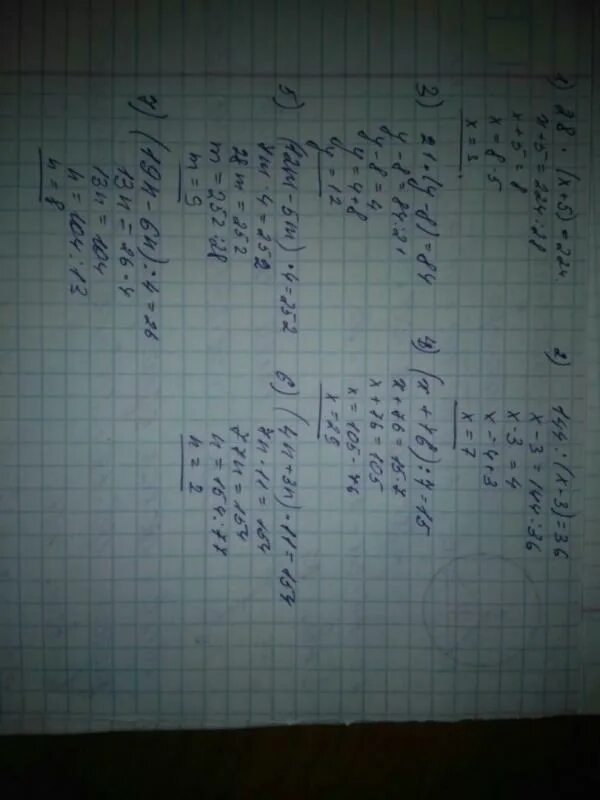 1) 28 · (x+5) = 224
x+5 = 224:28
x+5 = 8
x = 8-5
x = 3.
2) 144 : (x-3) = 36
x-3 = 144:36
x-3 = 4
x = 4+3
x = 7
3) 21·(y-8) = 84
y-8 = 84:21
y-8 = 4
y = 4+8
y = 12
4) (x+76) : 7 = 15
x+76 = 15·7
x+76 = 105
x = 105-76
x = 29
5) (12m-5m)·4 = 252
7m·4 = 252
28m = 252
m = 252:28
m = 9
6) (4n+3n)·11 = 154
7n·11 = 154
77n = 154
n = 154:77
n = 2
7) (19n-6n) : 4 = 26
13n = 26·4
13n = 104
n = 104:13
n = 8